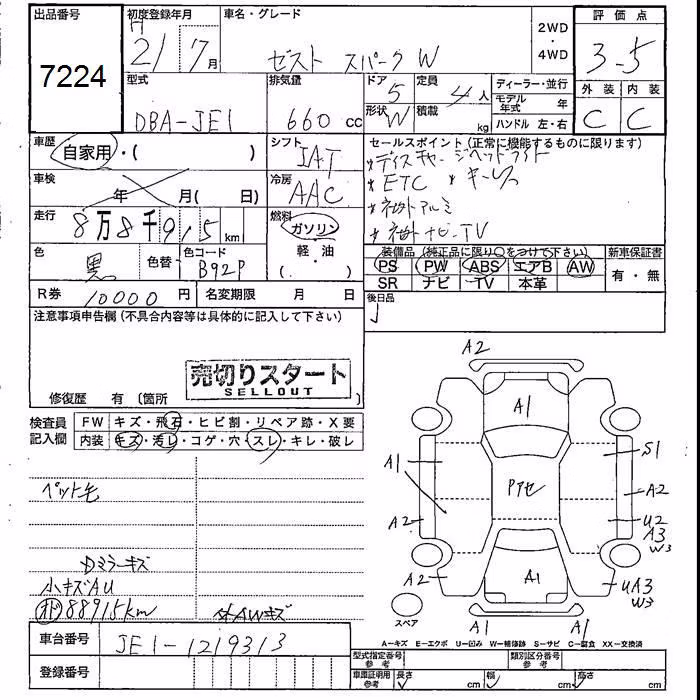 出品番号
7224
初度登録年月
H
21 7 月
車名・グレード
ゼスト スパーク W
2WD
・
4WD
評価点
3-5
外装 内装
C C
型式
DBA-JE1
排気量
660 cc
ドア
5
形状
W
定員
4 人
積載
kg
ディーラー・並行
モデル年式 年
ハンドル 左・右
車歴
自家用・( )
シフト
IAT
セールスポイント(正常に機能するものに限ります)
*ディスチャージヘッドライト
*ETC *キーレス
*社外アルミ
*社外ナビ-TV
車検
年 月(日)
冷房
AAC
走行
8万8千915 km
燃料
ガソリン
軽・油
( . )
色
黒
色替
色コード
B92P
装備品(純正品に限り○をつけて下さい)
PS PW ABS エアB AW
SR ナビ TV 本革
新車保証書
有・無
R券 10000 円
名変期限 月 日
後日品
注意事項申告欄(不具合内容等は具体的に記入して下さい)
売切りスタート
SELLOUT
修復歴 有 〔箇所 〕
検査員
記入欄
FW キズ・飛石・ヒビ割・リペア跡・X要
内装 キズ・汚レ・コゲ・穴・スレ・キレ・破レ
ペット毛
Dミラーキズ
小キズAU
88915km
社AWキズ
A2
A1
A1
Pアセ
S1
A2
A2
U2
A3
W3
A2
A1
UA3
W3
スペア
A1
A1
A-キズ E-エクボ U-凹み W-補修跡 S-サビ C-腐食 XX-交換済
車台番号
JE1-1219313
登録番号
型式指定番号
参考
類別区分番号
参考
車庫証明用
参考
長さ cm 幅 cm 高さ cm